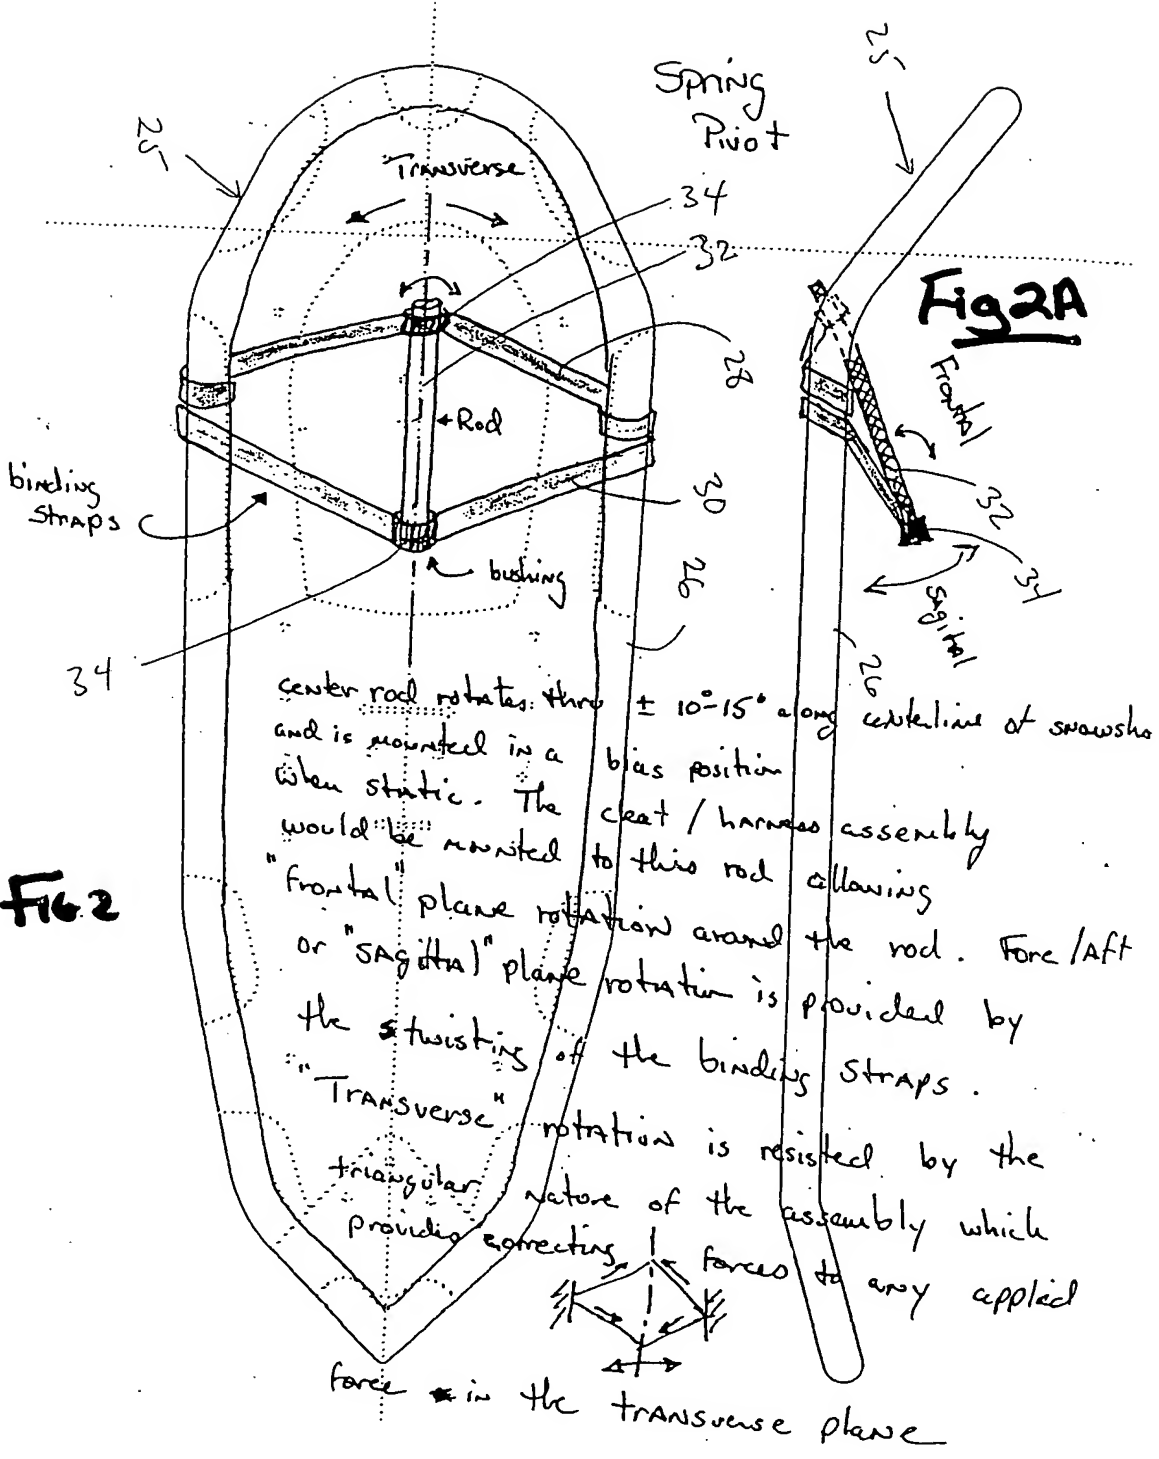 25
Spring
Pivot
25
Transverse
34
32
Fig2A
28
Frontal
Rod
binding
straps
30
32
bushing
26
34
Sagital
34
26
center rod rotates thru ± 10°-15° along centerline of snowsho
and is mounted in a bias position
when static. The cleat / harness assembly
would be mounted to this rod allowing
"frontal" plane rotation around the rod. Fore/Aft
Fig. 2
or "sagittal" plane rotation is provided by
the twisting of the binding straps.
"Transverse" rotation is resisted by the
triangular nature of the assembly which
provides correcting forces to any applied
force in the transverse plane